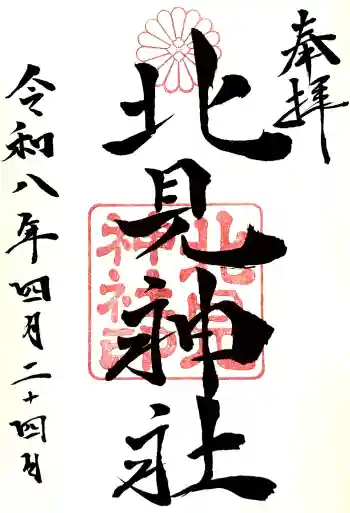 奉拝
北見神社
北見神社印
令和八年四月二十四日